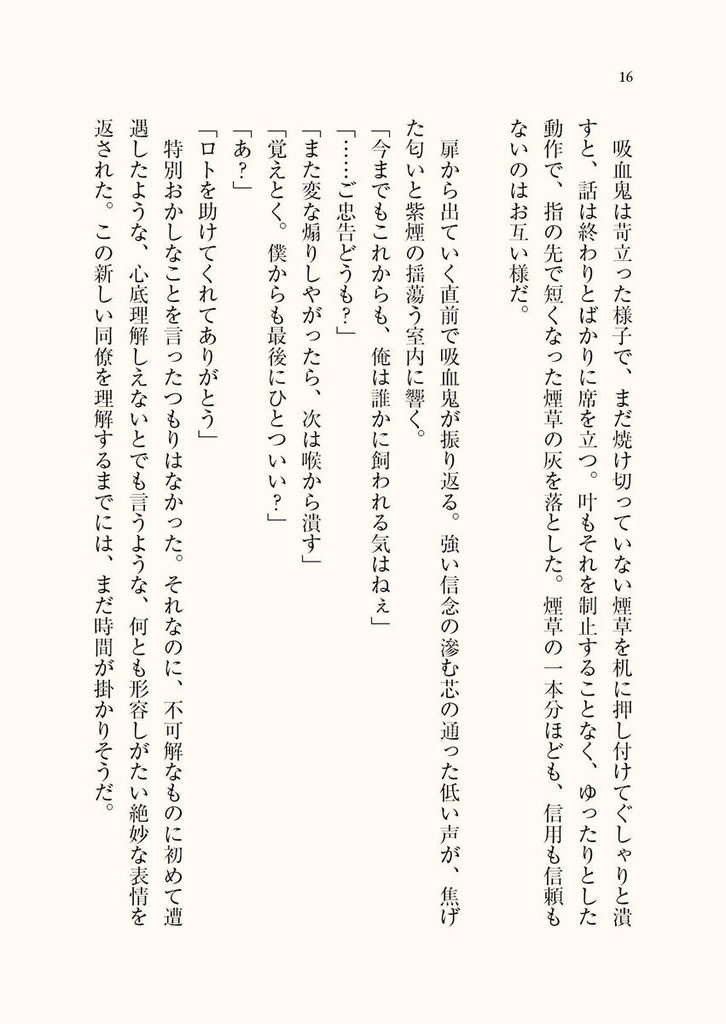 16
吸血鬼は苛立った様子で、まだ焼け切っていない煙草を机に押し付けてぐしゃりと潰
すと、話は終わりとばかりに席を立つ。叶もそれを制止することなく、ゆったりとした
動作で、指の先で短くなった煙草の灰を落とした。煙草の一本分ほども、信用も信頼も
ないのはお互い様だ。
扉から出ていく直前で吸血鬼が振り返る。強い信念の滲む芯の通った低い声が、焦げ
た匂いと紫煙の揺蕩う室内に響く。
「今までもこれからも、俺は誰かに飼われる気はねぇ」
「……ご忠告どうも？」
「また変な煽りしやがったら、次は喉から潰す」
「覚えとく。僕からも最後にひとついい？」
「あ？」
「ロトを助けてくれてありがとう」
特別おかしなことを言ったつもりはなかった。それなのに、不可解なものに初めて遭
遇したような、心底理解しえないとでも言うような、何とも形容しがたい絶妙な表情を
返された。この新しい同僚を理解するまでには、まだ時間が掛かりそうだ。